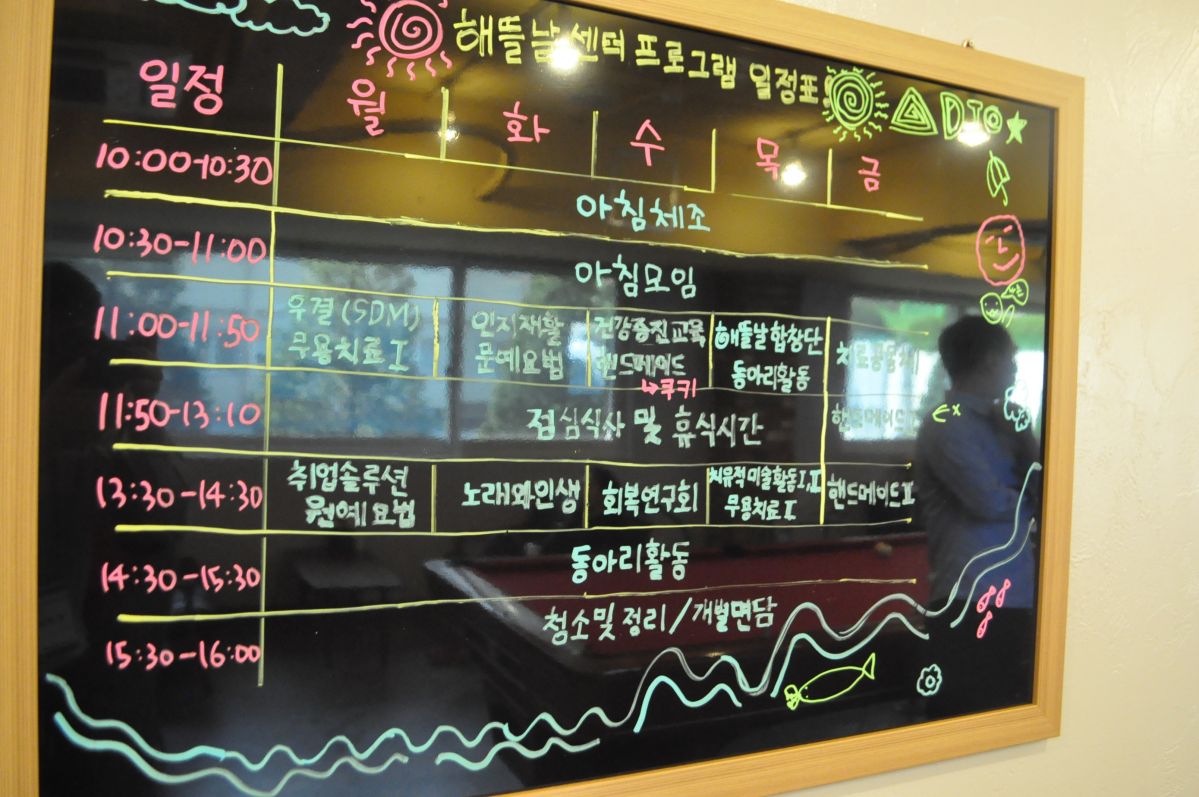 해뜰날 센터 프로그램 일정표
일정 월 화 수 목 금
10:00-10:30 아침체조
10:30-11:00 아침모임
11:00-11:50
우결(SDM) 인지재활 건강증진교육 해뜰날합창단
무용치료 I 문예요법 핸드메이드 동아리활동
↳쿠키
11:50-13:10 점심식사 및 휴식시간
13:30-14:30
취업솔루션 노래와인생 회복연구회 치유적미술활동 I, II 핸드메이드 II
원예요법 무용치료 II
14:30-15:30 동아리활동
청소및정리/개별면담
15:30-16:00